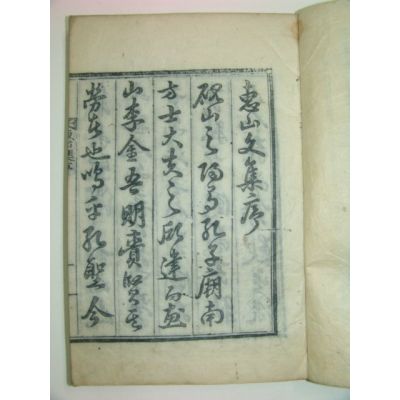 惠山文集序
硯山之陽有孔子廟南
方士大夫之所建而惠
山李金吾明賚賢其
勞者也嗚乎孔聖今